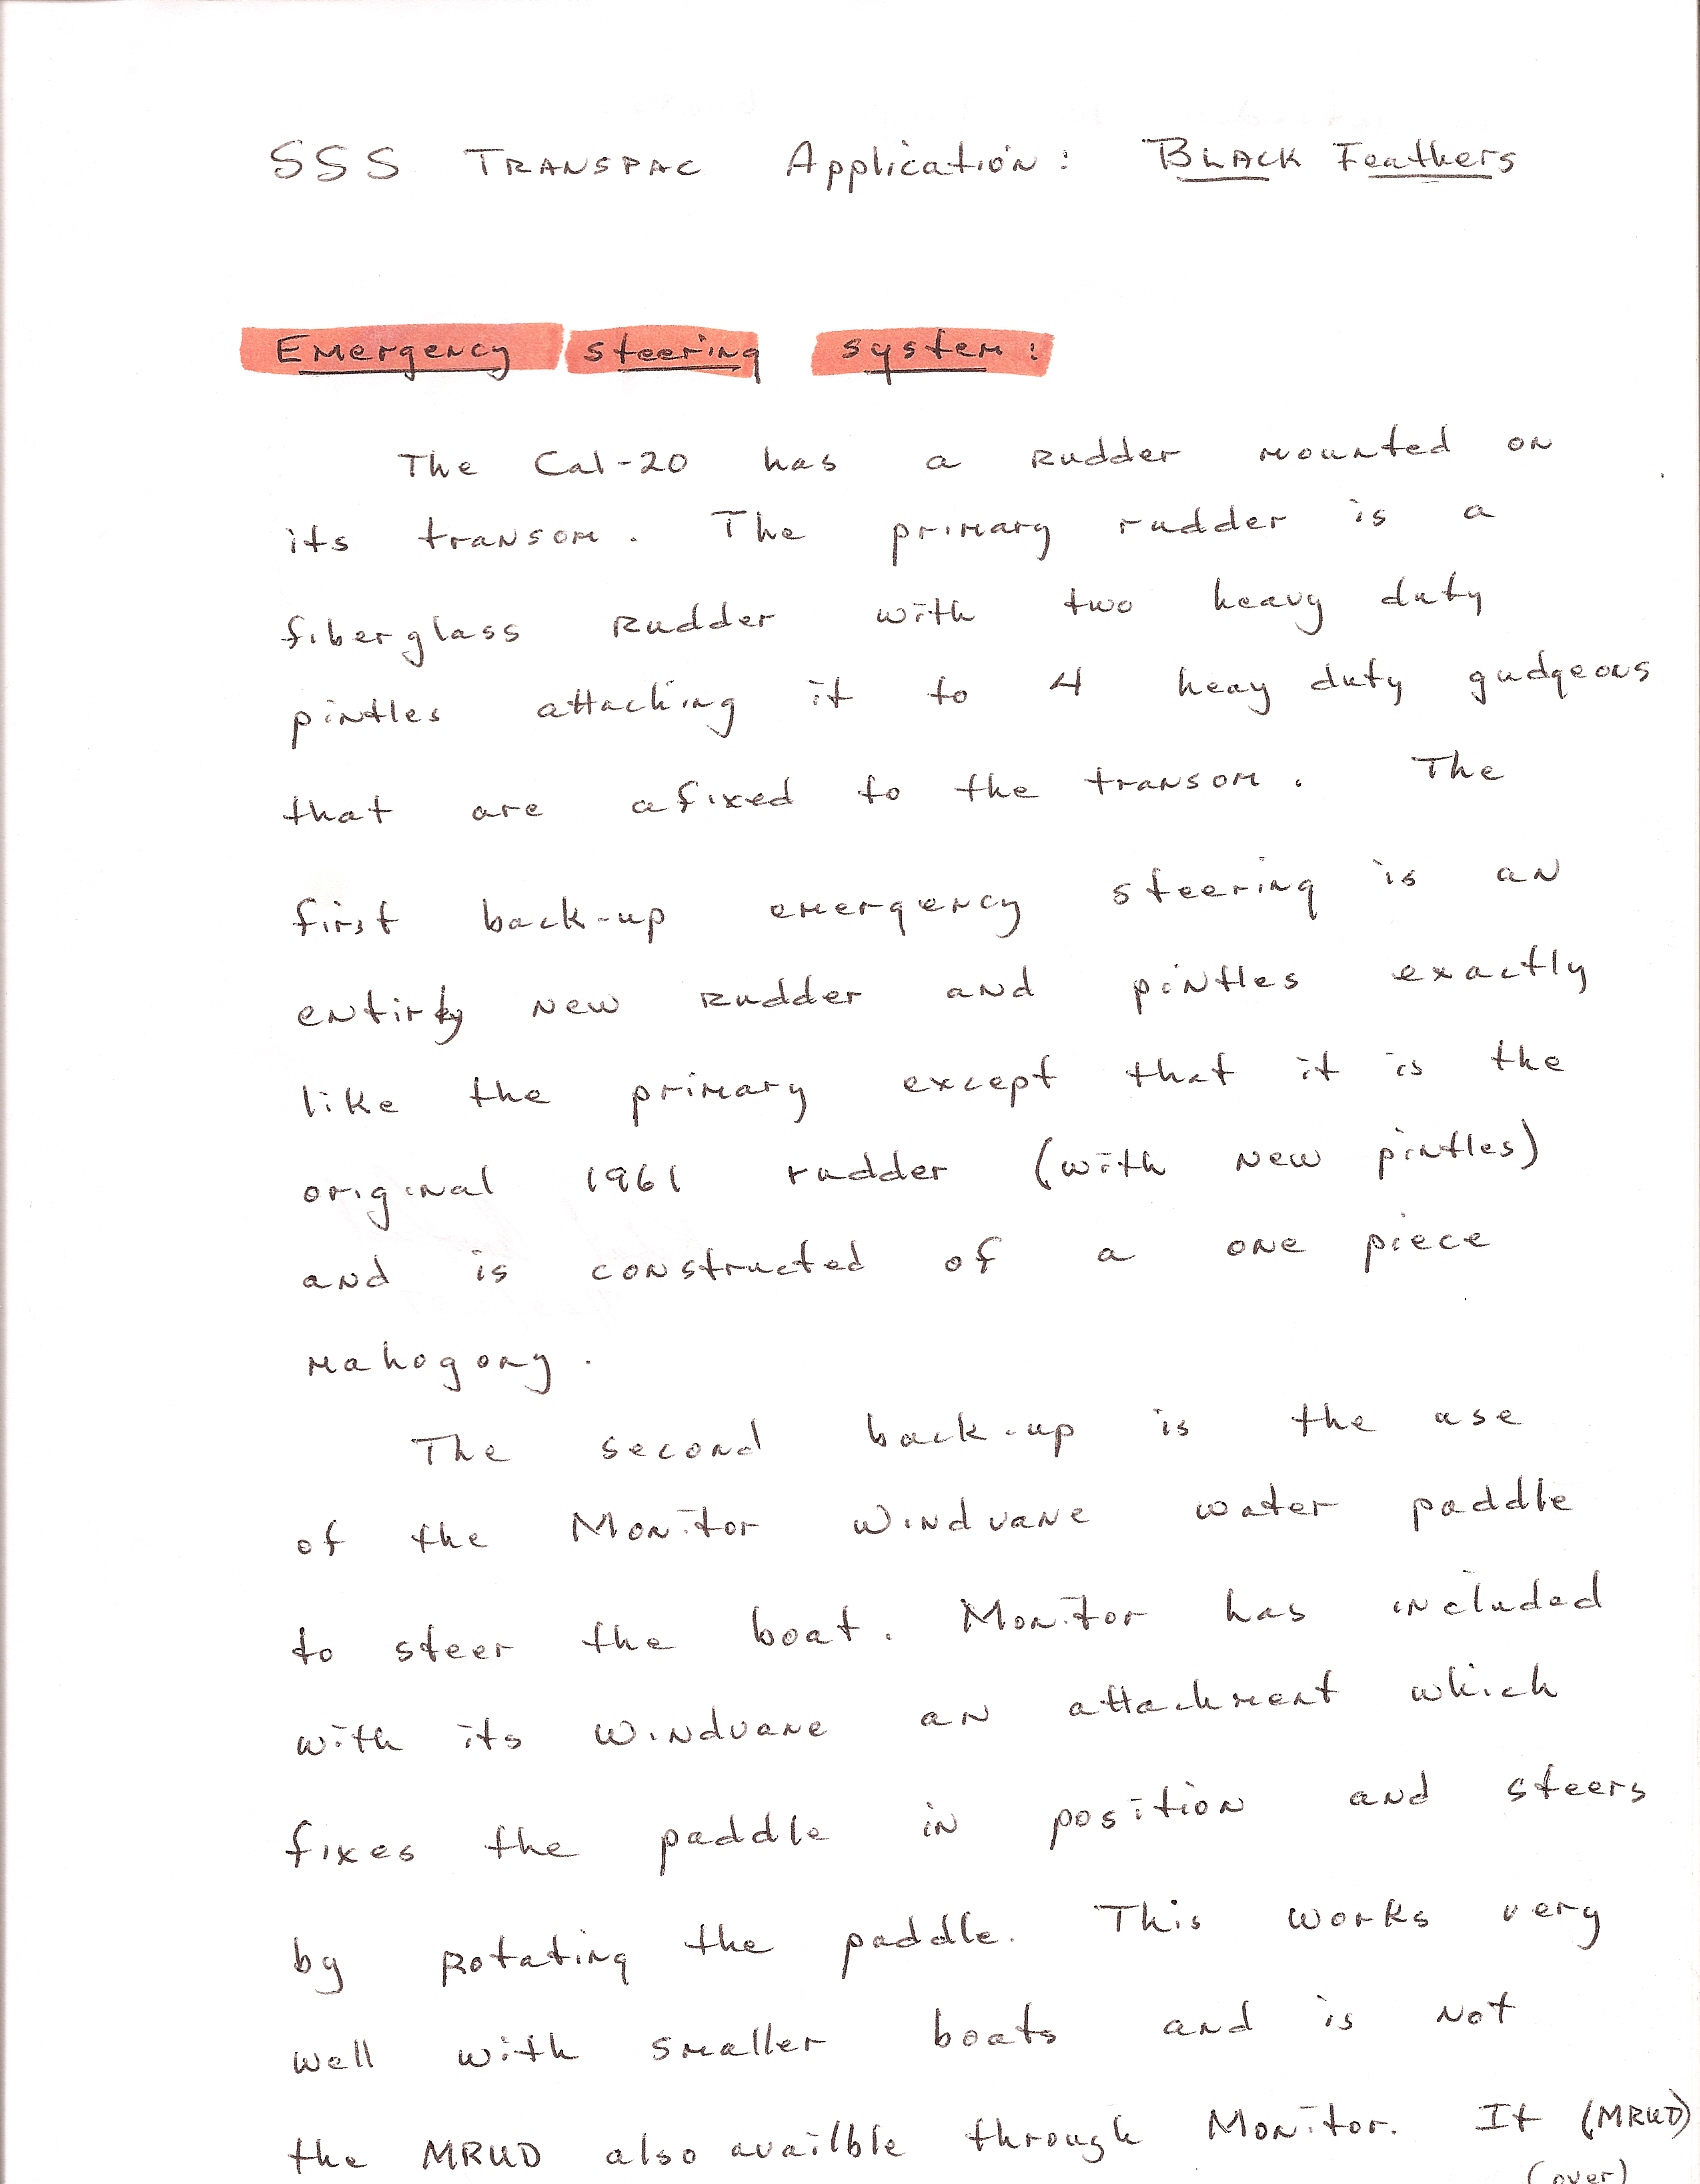 SSS TRANSPAC Application: BLACK Feathers
Emergency steering system:
The Cal-20 has a Rudder mounted on
its transom. The primary rudder is a
fiberglass Rudder with two heavy duty
pintles attaching it to 4 heay duty gudgeons
that are afixed to the transom. The
first back-up emergency steering is an
entirly new Rudder and pintles exactly
like the primary except that it is the
original 1961 rudder (with new pintles)
and is constructed of a one piece
mahogony.
The second back-up is the use
of the Monitor Windvane water paddle
to steer the boat. Monitor has included
with its Windvane an attachment which
fixes the paddle in position and steers
by Rotating the paddle. This works very
well with smaller boats and is not
the MRUD also availble through Monitor. It (MRUD)
(over)